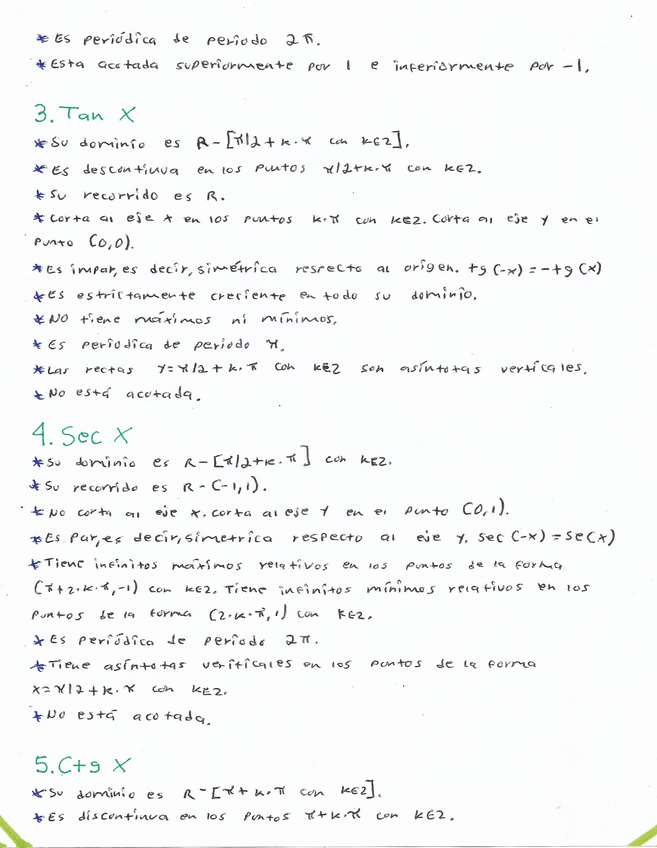 * Es periódica de periodo 2π.
* Esta acotada superiormente por 1 e inferiormente por -1.
3. Tan X
* Su dominio es R-[π/2+k·π con k∈Z].
* Es descontinua en los puntos π/2+k·π con k∈Z.
* Su recorrido es R.
* Corta al eje x en los puntos k·π con k∈Z. Corta al eje y en el
punto (0,0).
* Es impar, es decir, simétrica respecto al origen. tg (-x) = -tg (x)
* Es estrictamente creciente en todo su dominio.
* No tiene máximos ni mínimos.
* Es periodica de periodo π.
* Las rectas y=π/2+k·π con k∈Z son asíntotas verticales.
* No está acotada.
4. Sec X
* Su dominio es R-[π/2+k·π] con k∈Z.
* Su recorrido es R-(-1,1).
* No corta al eje x. corta al eje y en el punto (0,1).
* Es Par, es decir, simetrica respecto al eje y. Sec (-x) = Sec (x)
* Tiene infinitos máximos relativos en los puntos de la forma
(π+2·k·π,-1) con k∈Z. Tiene infinitos mínimos relativos en los
puntos de la forma (2·k·π,1) con k∈Z.
* Es periódica de periodo 2π.
* Tiene asíntotas veriticales en los puntos de la forma
x=π/2+k·π con k∈Z.
* No está acotada.
5. Ctg X
* Su dominio es R-[π+k·π con k∈Z].
* Es discontinua en los puntos π+k·π con k∈Z.